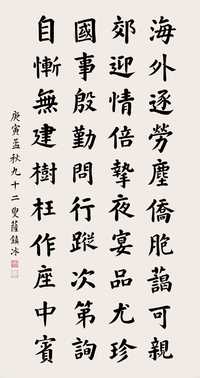 海外逐勞塵僑胞藹可親
郊迎情倍摯夜宴品尤珍
國事殷勤問行蹤次第詢
自慚無建樹枉作座中賓
庚寅孟秋九十二叟薩鎮冰